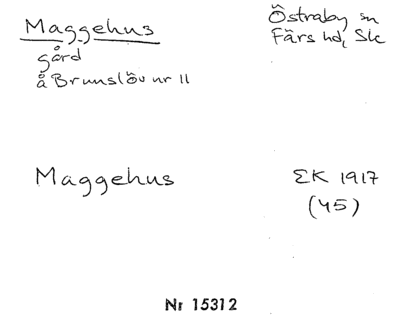 Maggehus
gård
å Brunslöv nr 11
Östraby sn
Färs hd, Skc
Maggehus
EK 1917
(45)
Nr 15312